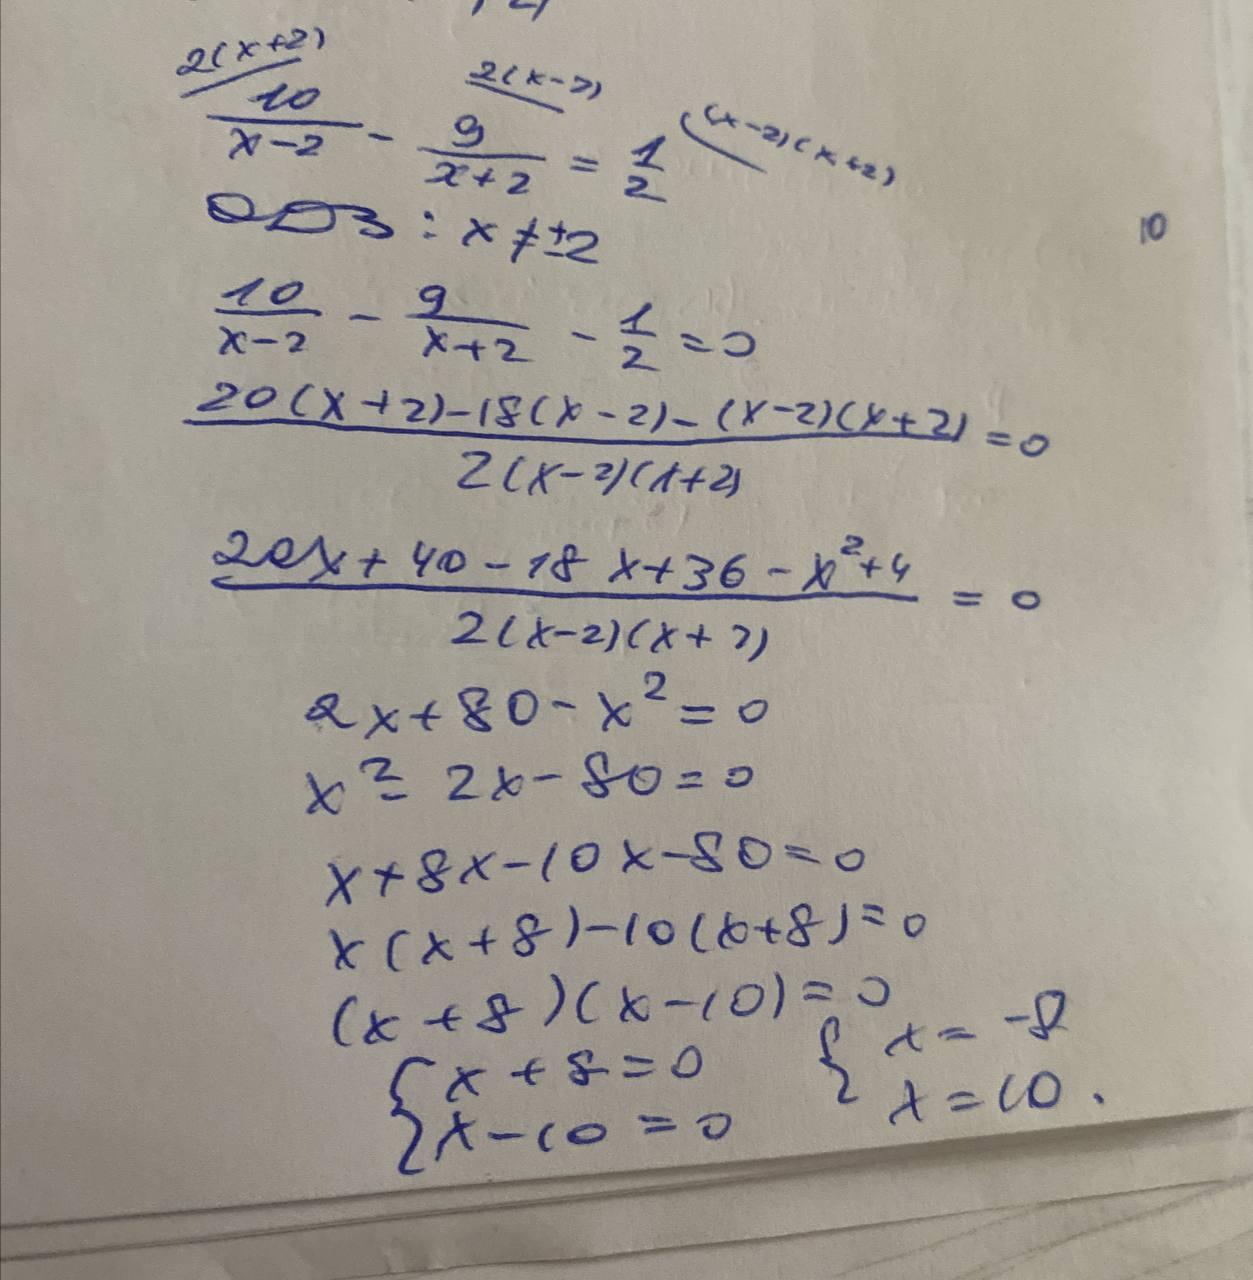 2(x+2) 2(x-2) (x-2)(x+2)
10/(x-2) - 9/(x+2) = 1/2
ОДЗ: x ≠ ±2
10
10/(x-2) - 9/(x+2) - 1/2 = 0
(20(x+2)-18(x-2)-(x-2)(x+2))/(2(x-2)(x+2)) = 0
(20x+40-18x+36-x²+4)/(2(x-2)(x+2)) = 0
2x+80-x²=0
x²-2x-80=0
x+8x-10x-80=0
x(x+8)-10(x+8)=0
(x+8)(x-10)=0
{ x+8=0 { x=-8
x-10=0 x=10.